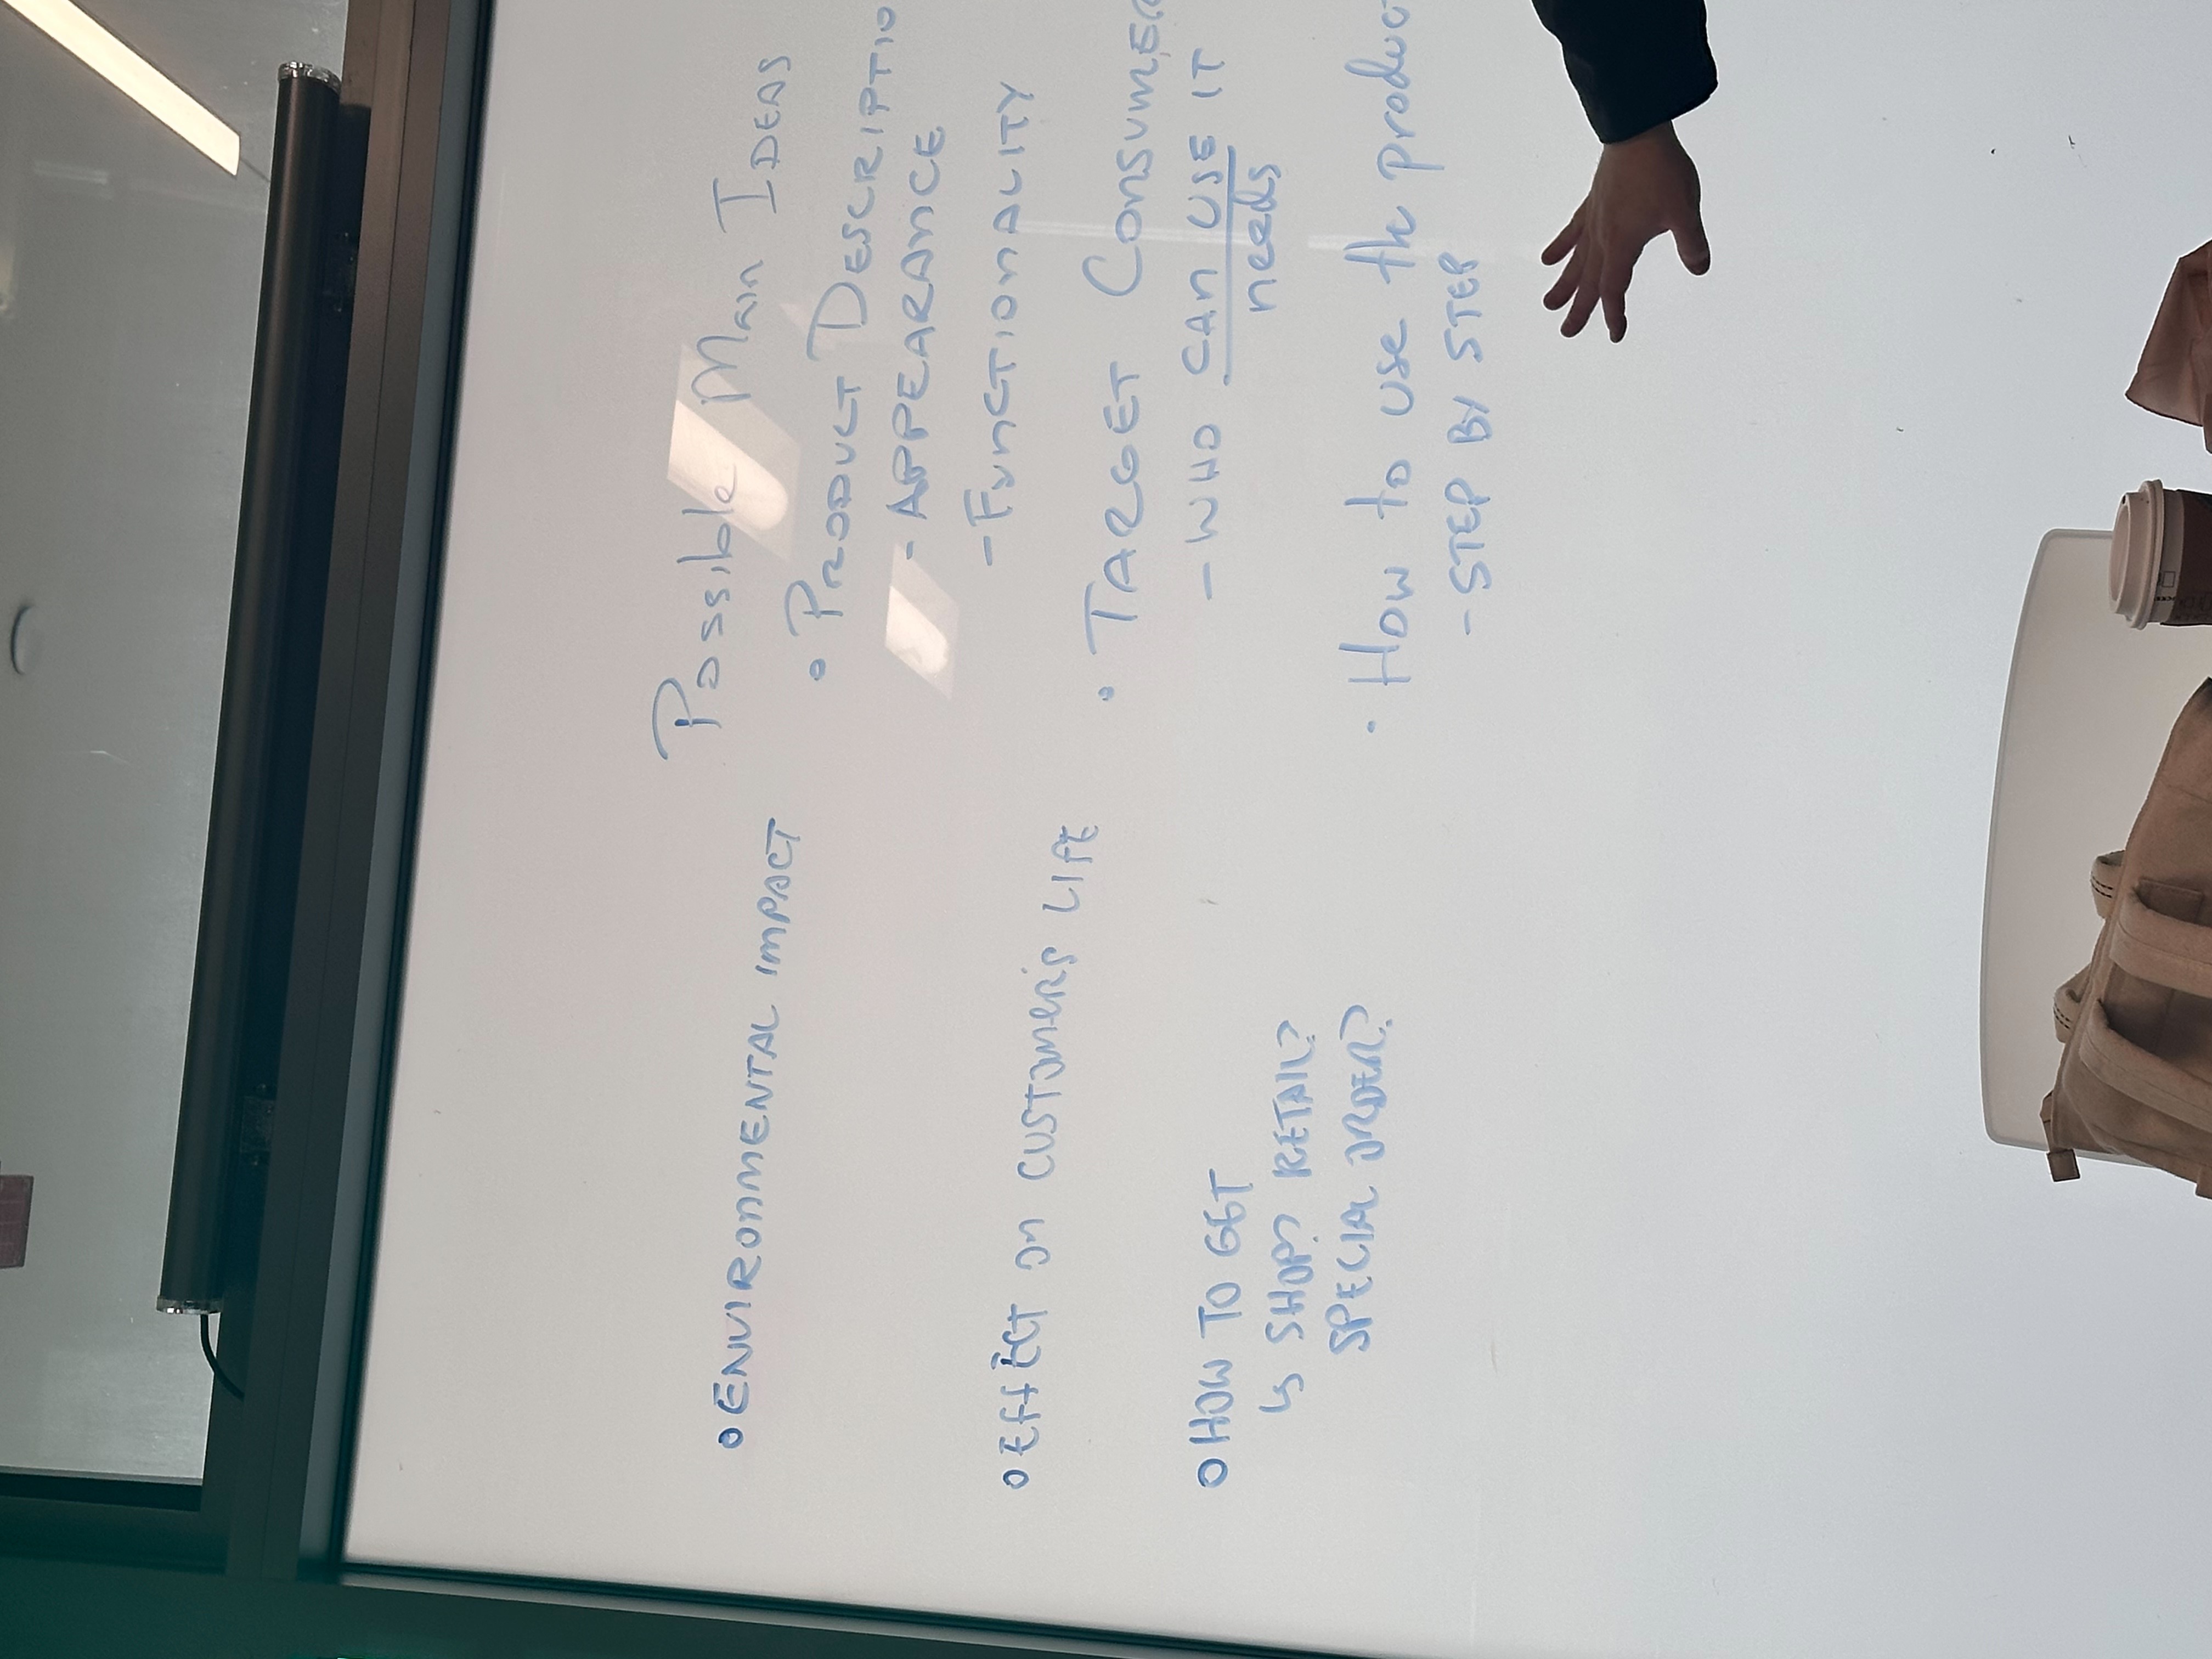 Possible Main Ideas
• ENVIRONMENTAL IMPACT
• EffECT on CUSTOMER'S LIfE
• HOW TO GET
↳ SHOP? RETAIL?
SPECIAL ORDER?
• PRODUCT DESCRIPTIO
- APPEARANCE
- FUNCTIONALITY
• TARGET CONSUMER
- WHO CAN USE IT
needs
• How to use the produc
- STEP BY STEP